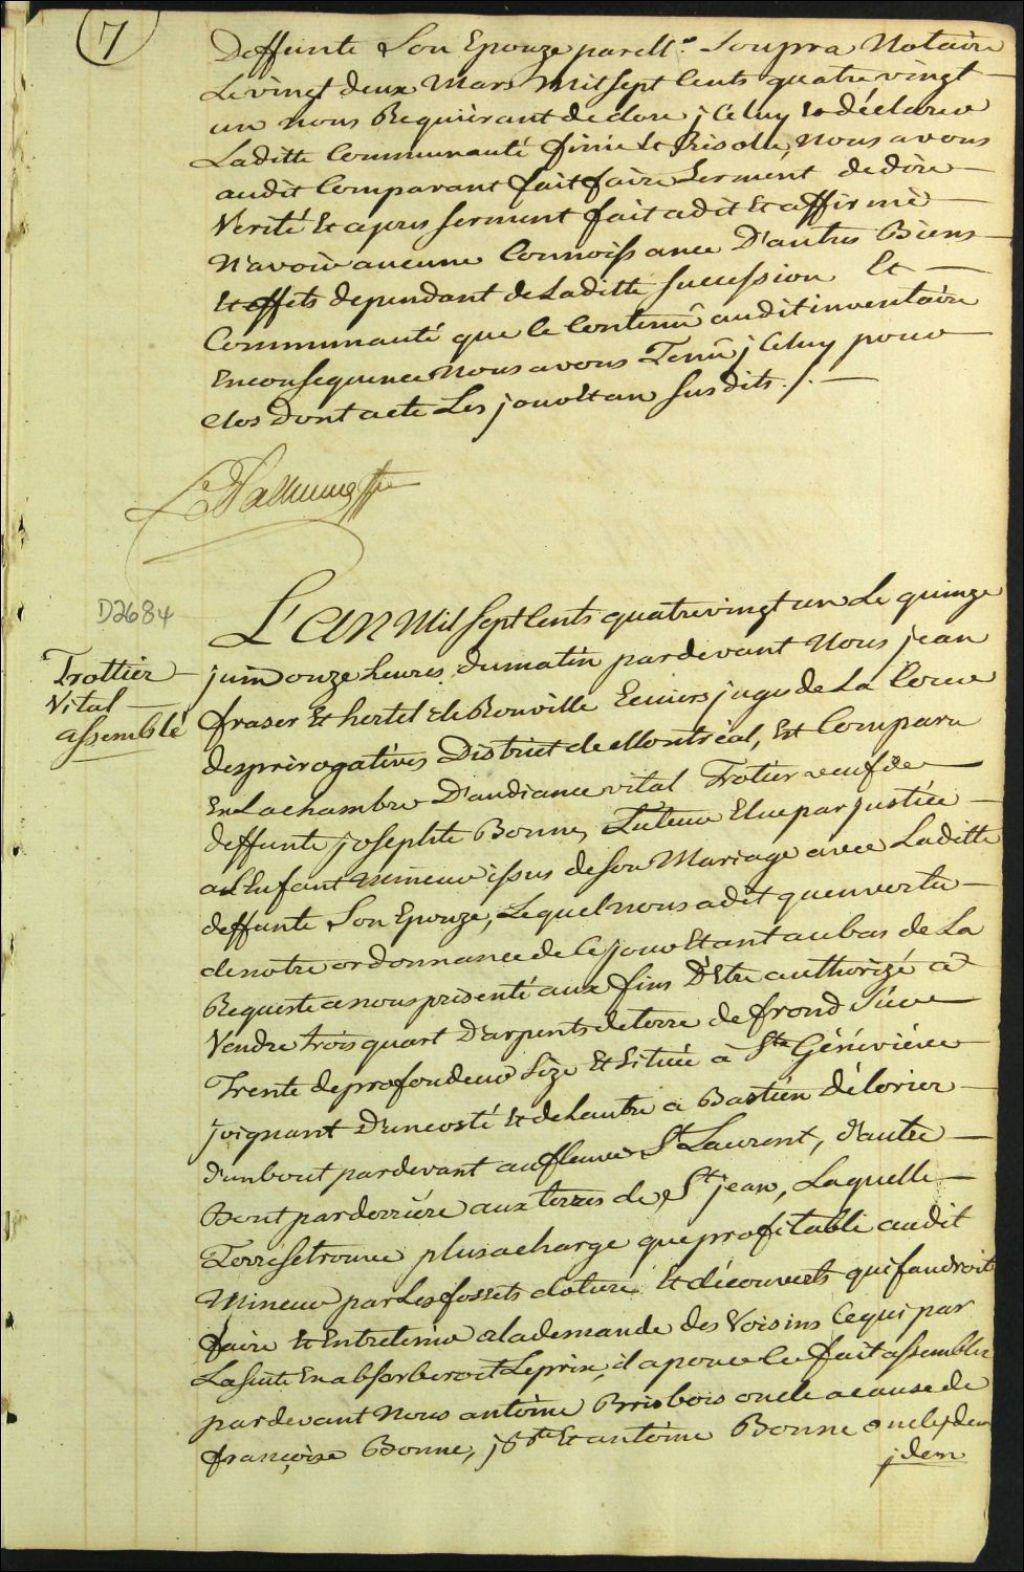 7
Deffunte Son Epouze par Mtre Soupra Notaire
Le vingt deux Mars Mil Sept Cents quatre vingt
un nous Requiérant de clore jCeluy & déclarer
Laditte Communauté finie & Risolue, nous avons
audit Comparant fait faire Serment de dire
Verité Et apres serment fait a dit Et affirmé
N'avoir aucune Connoissance D'autres Biens
Et effets dependant de Laditte succession Et
Communauté que le Contenû audit inventaire
En consequence Nous avons Tenû jCeluy pour
clos dont acte Les jour Et an susdits ./.
D2684
Trottier
Vital
assemblé
L'an Mil Sept Cents quatre vingt un Le quinze
juin onze heures du matin pardevant Nous jean
fraser Et hertel de Rouville Ecuiers juges de La Cour
des prérogatives District de Montréal, Est Comparu
En La chambre D'audiance vital Trotier veuf de
deffunte josephte Bonne, Tuteur Elue par justice
a L'Enfant Mineur issus de son Mariage avec Laditte
deffunte Son Epouze, Lequel nous a dit qu'en vertu
de notre ordonnance de Ce jour Etant au bas de La
Requeste a nous présenté aux fins D'Etre authorizé a
Vendre trois quart D'arpents de terre de frond Sur
Trente de profondeur Size Et Située à Ste Géneviéve
joignant D'un costé Et de Lautre a Bastien Délorier
d'un bout par devant au fleuve St Laurent, d'autre
Bout par derriére aux terres de St jean, Laquelle
Terre se trouve plus a charge que profitable audit
Mineur par Les fossets cloture Et découverts qui faudroit
faire Et Entretenir a la demande des Voisins Ce qui par
La suite En absorberoit Le prix, il a pour ce fait assembler
pardevant Nous antoine Brisbois oncle a cause de
françoise Bonne, jB.te Et antoine Bonne oncle jdem
jdem